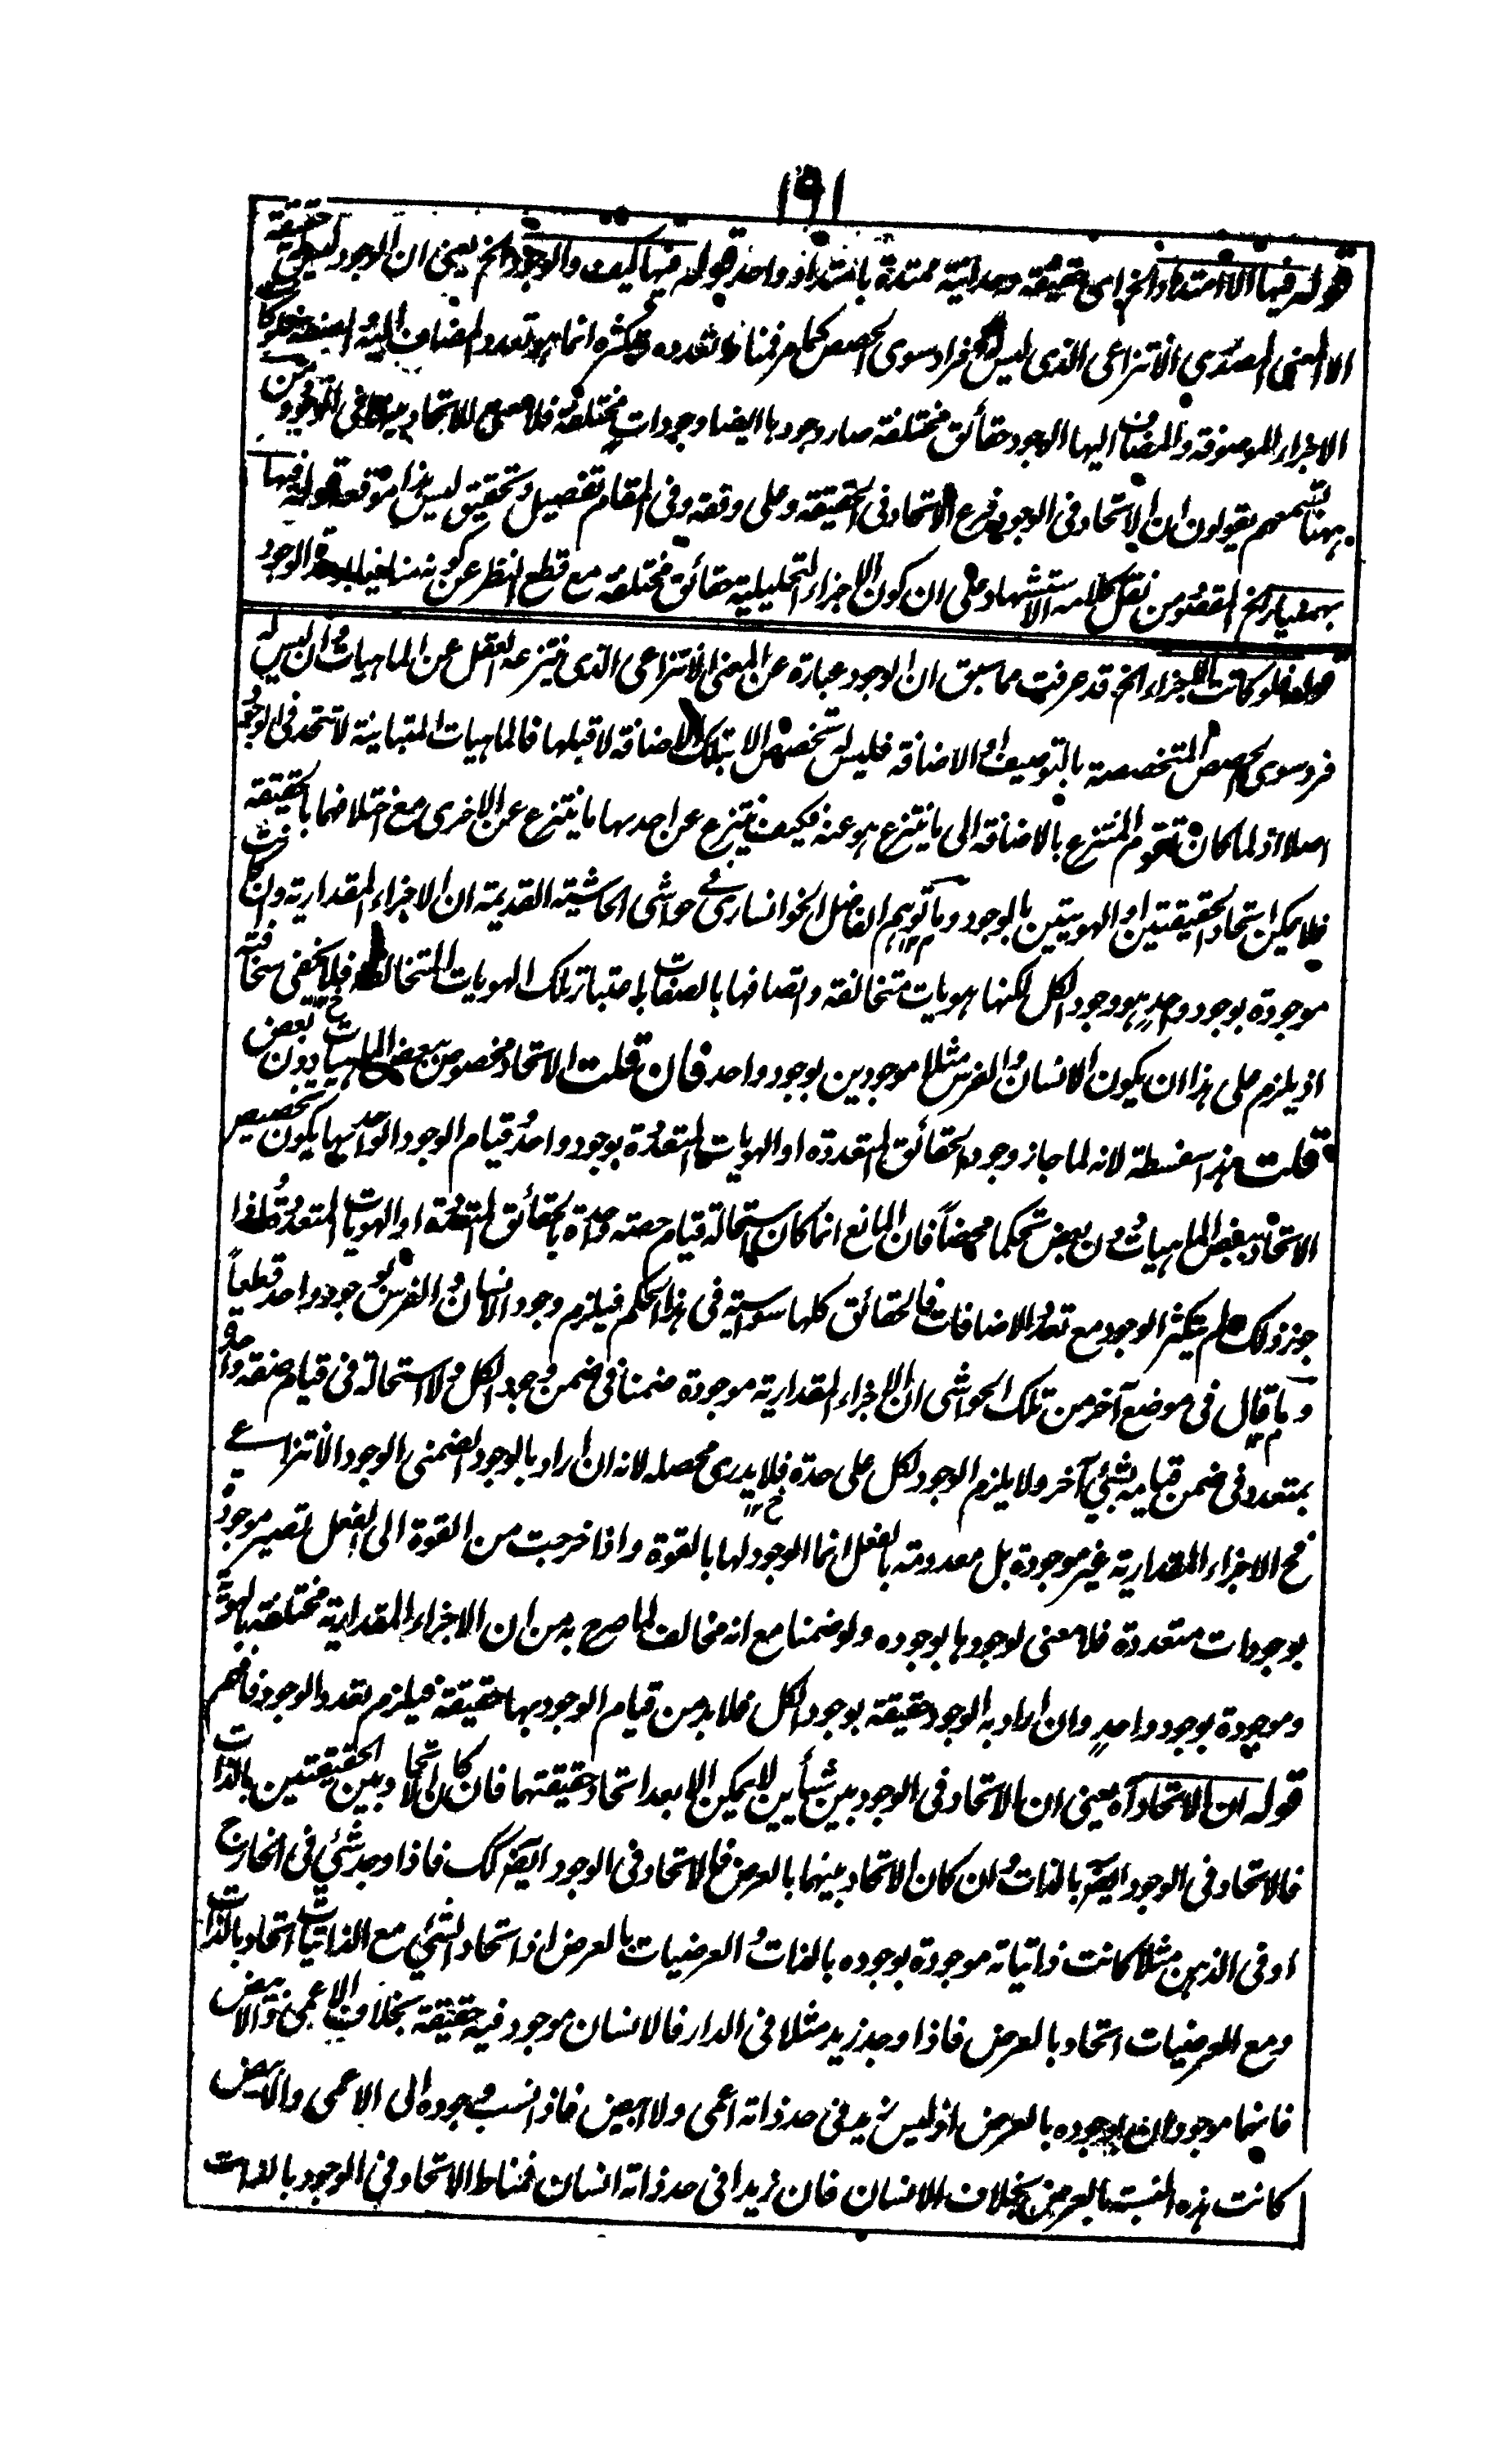 ١٩١
قوله فيها الا امتداد الخ اى حقيقة وحدانية ممتدة بامتداد واحد قوله فيها كيف والوجود الخ يعنى ان الوجود ليس حقيقة
الا المعنى المصدرى الانتزاعى الذى ليس له افراد سوى الحصص كما مر فمناط تعدده وتكثره انما هو تعدد المضاف اليه
الاجزاء الموصوفة والمضاف اليها الوجود حقائق مختلفة صار وجودها ايضا وجودات مختلفة فلا معنى للاتحاد بينها فى الوجود ومن
ههنا تسمعهم يقولون ان الاتحاد فى الوجود فرع الاتحاد فى الحقيقة وعلى وفقه وفى المقام تفصيل وتحقيق ليس هذا موقعه قوله فيها
بهمنيار الخ المقصود من نقل كلامه الاستشهاد على ان كون الاجزاء التحليلية حقائق مختلفة مع قطع النظر عن كونه منافيا لوحدة الوجود
قوله فلو كانت الاجزاء الخ قد عرفت مما سبق ان الوجود عبارة عن المعنى الانتزاعى الذى ينتزعه العقل عن الماهيات وان ليس له
فرد سوى الحصص المتخصصة بالتوصيف او الاضافة فليس له تخصص الا بتلك الاضافة لا قبلها فالماهيات المتباينة لا تتحد فى الوجود
اصلا اذ لما كان تقوم المنتزع بالاضافة الى ما ينتزع هو عنه فكيف ينتزع عن احدهما ما ينتزع عن الاخرى مع اختلافهما بالحقيقة
فلا يمكن اتحاد الحقيقتين او الهويتين بالوجود وما توهم الفاضل الخوانسارى فى حواشى الحاشية القديمة ان الاجزاء المقدارية وان كانت
موجودة بوجود واحد هو وجود الكل لكنها هويات متخالفة واتصافها بالصفات باعتبار تلك الهويات المتخالفة فلا يخفى سخافته
اذ يلزم على هذا ان يكون الانسان والفرس مثلا موجودين بوجود واحد فان قلت الاتحاد مخصوص ببعض الماهيات دون بعض
قلت هذا سفسطة لانه لما جاز وجود الحقائق المتعددة او الهويات المتعددة بوجود واحد وقيام الوجود الواحد بها يكون تخصيص
الاتحاد ببعض الماهيات دون بعض تحكما محضاً فان المانع انما كان استحالة قيام حصة واحدة بالحقائق المتعددة او الهويات المتعددة فاذا
جوز ذلك ولم يتكثر الوجود مع تعدد الاضافات فالحقائق كلها سواسية فى هذا الحكم فيلزم وجود الانسان والفرس بوجود واحد قطعاً
وما قال فى موضع آخر من تلك الحواشى ان الاجزاء المقدارية موجودة ضمنا فى ضمن وجود الكل ولا استحالة فى قيام صفة واحدة
بمتعدد فى ضمن قيامه بشئ آخر ولا يلزم الوجود لكل على حدة فلا يدرى محصله لانه ان اراد بالوجود الضمنى الوجود الانتزاعى
فح الاجزاء المقدارية غير موجودة بل معدومة بالفعل انما الوجود لها بالقوة واذا خرجت من القوة الى الفعل تصير موجودة
بوجودات متعددة فلا معنى لوجودها بوجوده ولو ضمنا مع انه مخالف لما صرح به من ان الاجزاء المقدارية مختلفة بالهوية
وموجودة بوجود واحدٍ وان اراد به الوجود حقيقة بوجود الكل فلا بد من قيام الوجود بها حقيقة فيلزم تعدد الوجود فافهم
قوله ان الاتحاد آه يعنى ان الاتحاد فى الوجود بين شيأين لا يمكن الا بعد اتحاد حقيقتهما فان كان الاتحاد بين الحقيقتين بالذات
فالاتحاد فى الوجود ايضا بالذات وان كان الاتحاد بينهما بالعرض فالاتحاد فى الوجود ايضا كذلك فاذا وجد شئ فى الخارج
او فى الذهن مثلا كانت ذاتياته موجودة بوجوده بالذات والعرضيات بالعرض اذ اتحاد الشئ مع الذاتيات اتحاد بالذات
ومع العرضيات اتحاد بالعرض فاذا وجد زيد مثلا فى الدار فالانسان موجود فيه حقيقة بخلاف الاعمى والابيض
فانهما موجودان بوجوده بالعرض اذ ليس زيد فى حد ذاته اعمى ولا ابيض فاذا نسب وجوده الى الاعمى والابيض
كانت هذه النسبة بالعرض بخلاف الانسان فان زيدا فى حد ذاته انسان فمناط الاتحاد فى الوجود بالذات